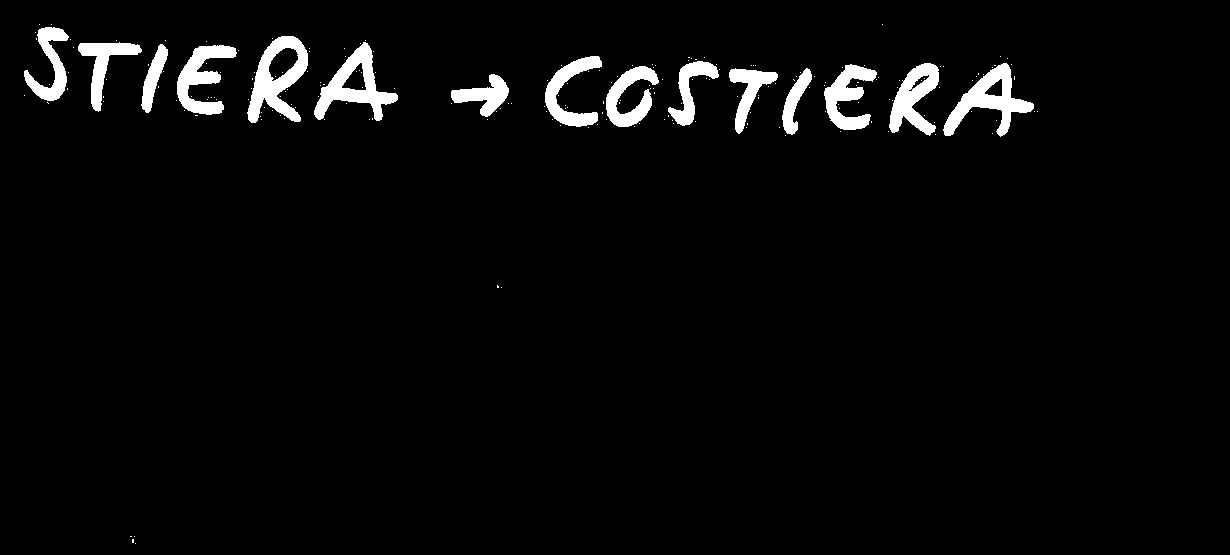 STIERA → COSTIERA